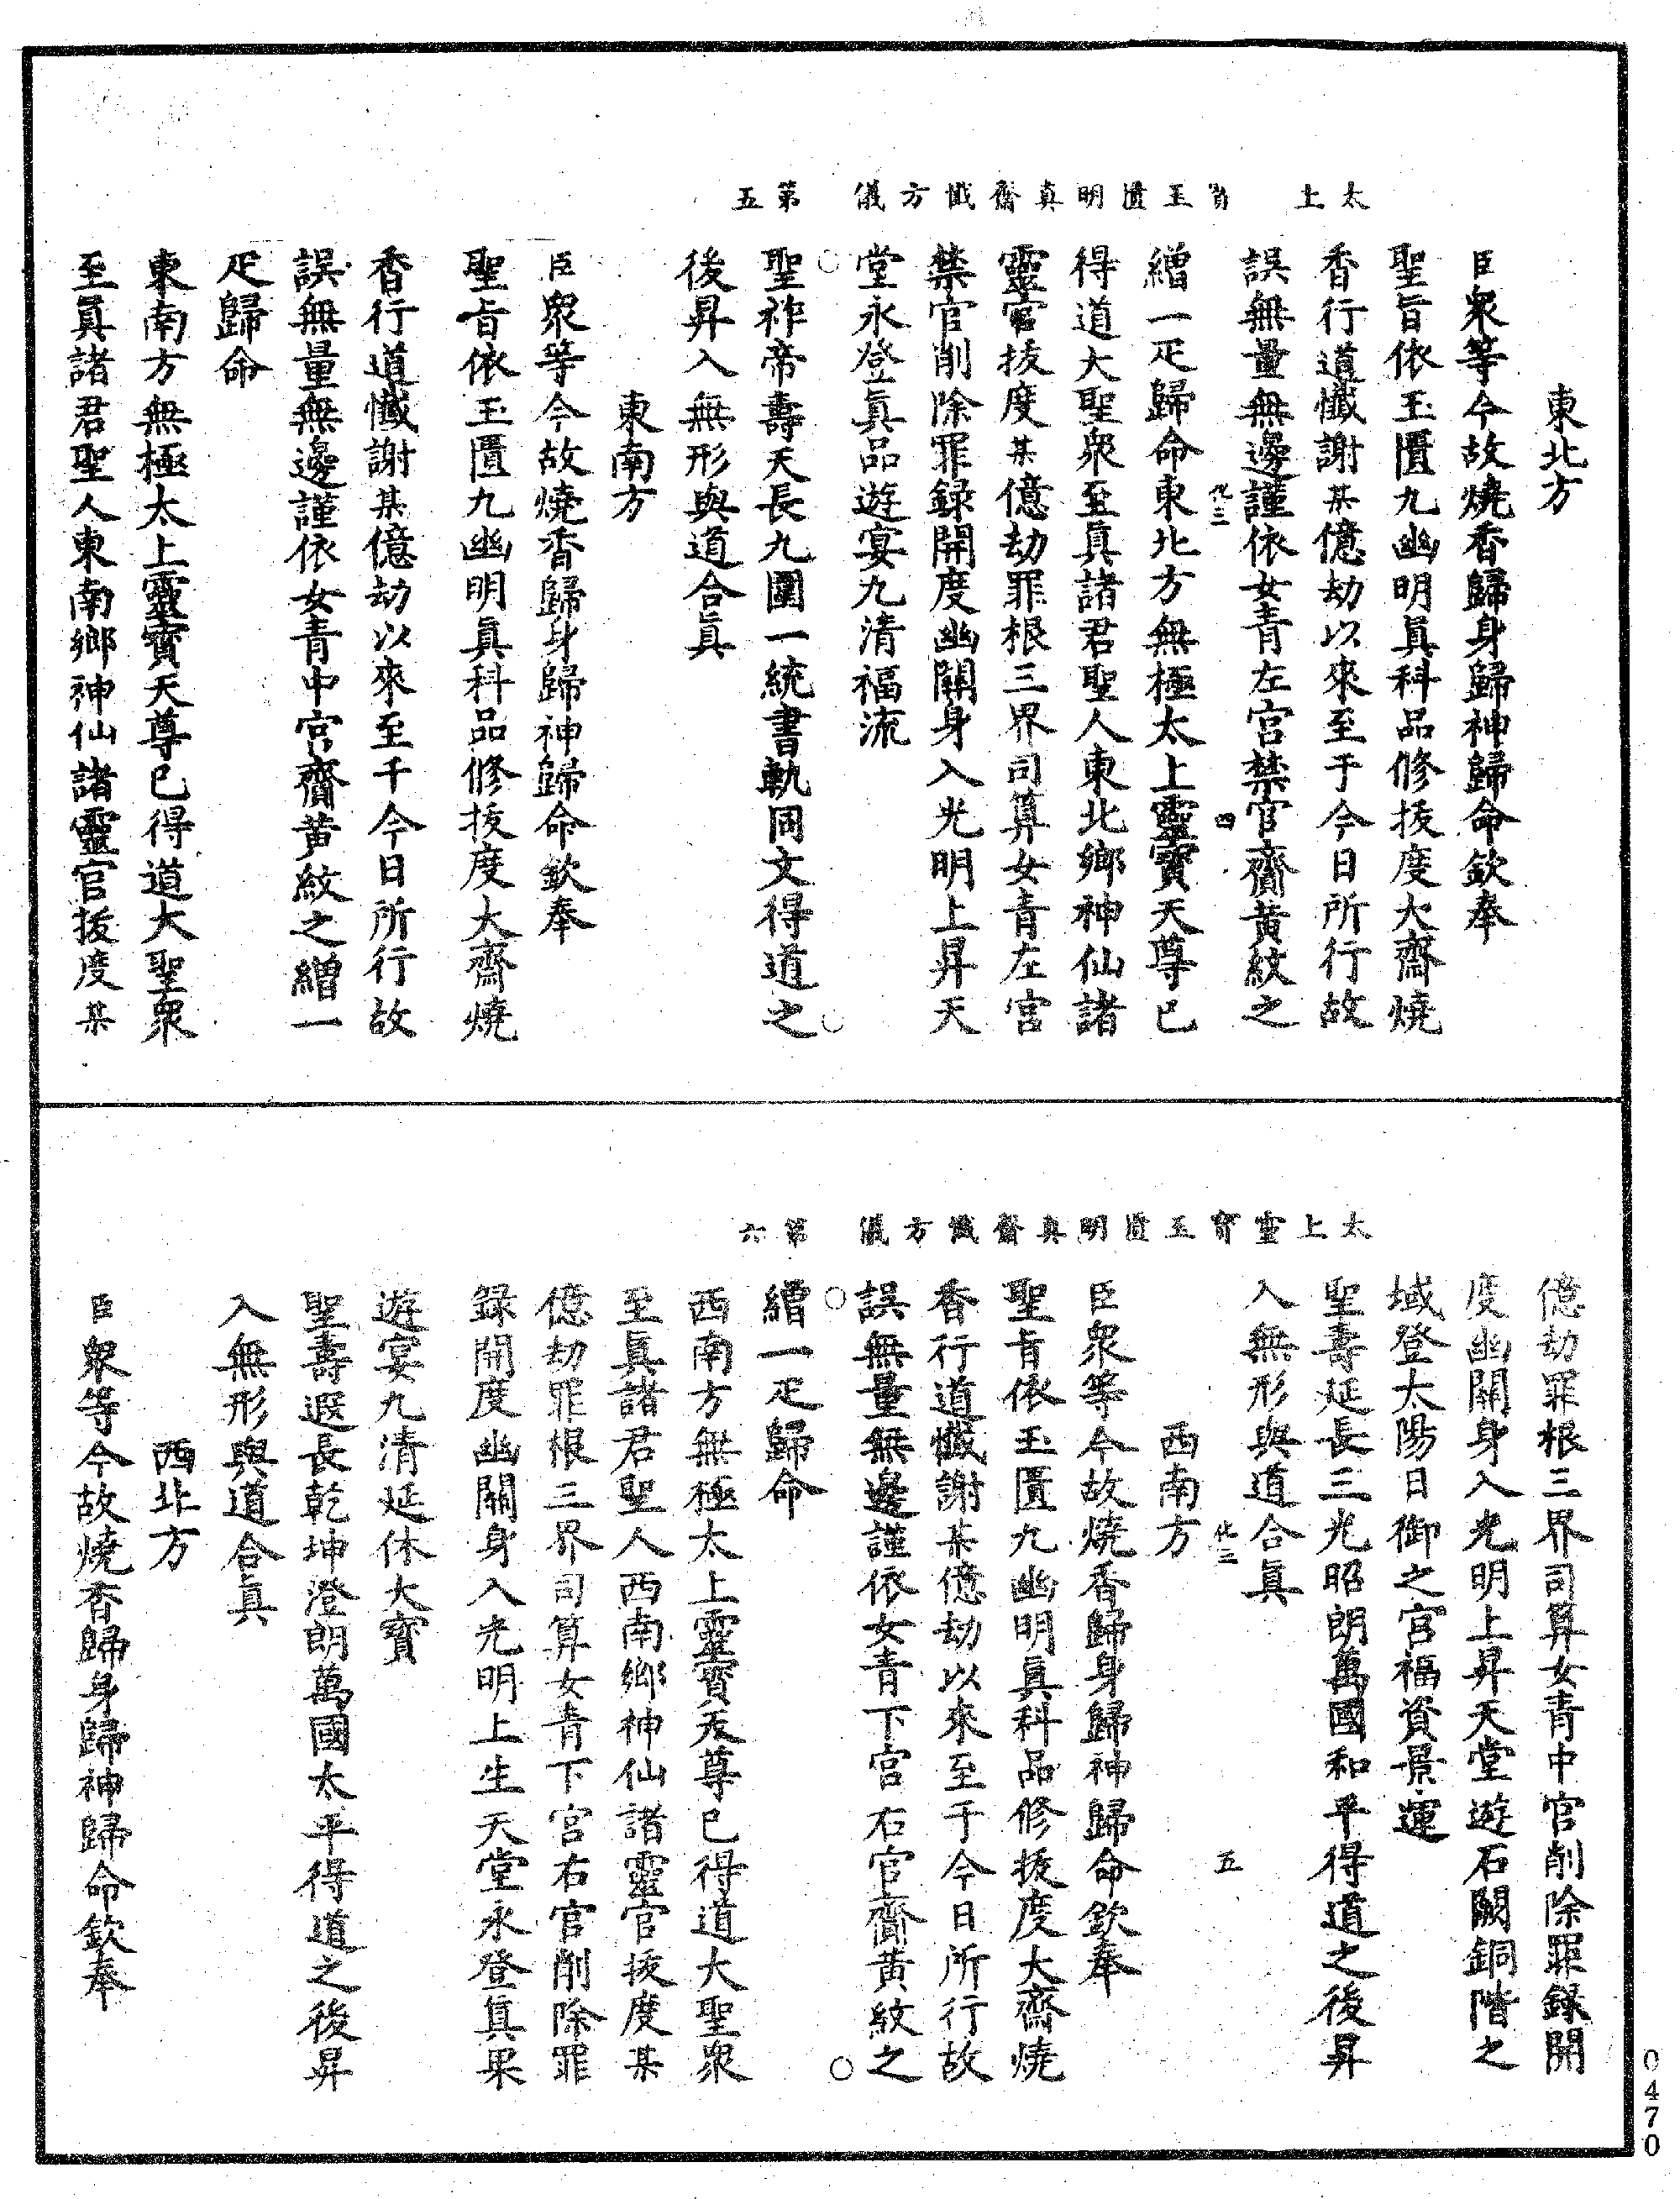 太上寳玉匱明真齋懴方儀　第五
東北方
臣衆等今故燒香歸身歸神歸命欽奉
聖旨依玉匱九幽明眞科品修拔度大齋燒
香行道懴謝某億劫以來至于今日所行故
誤無量無邊謹依女青左宫禁官齎黄紋之
化三　四
繒一疋歸命東北方無極太上靈寳天尊已
得道大聖衆至眞諸君聖人東北鄉神仙諸
靈官拔度某億劫罪根三界司算女青左宫
禁官削除罪録開度幽關身入光明上昇天
堂永登眞品遊宴九清福流
聖祚帝壽天長九圍一統書軌同文得道之
後昇入無形與道合眞
東南方
臣衆等今故燒香歸身歸神歸命欽奉
聖旨依玉匱九幽明眞科品修拔度大齋燒
香行道懴謝某億劫以來至千今日所行故
誤無量無邊謹依女青中宫齎黄紋之繒一
疋歸命
東南方無極太上靈寳天尊已得道大聖衆
至眞諸君聖人東南鄉神仙諸靈官拔度某
太上靈寳玉匱明真齋懴方儀　第六
億劫罪根三界司算女青中官削除罪録開
度幽關身入光明上昇天堂遊石闕銅階之
域登太陽日御之宫福資景運
聖壽延長三光昭朗萬國和平得道之後昇
入無形與道合眞
西南方
化三　五
臣衆等今故燒香歸身歸神歸命欽奉
聖旨依玉匱九幽明眞科品修拔度大齋燒
香行道懴謝某億劫以來至于今日所行故
誤無量無邊謹依女青下宫右官齎黄紋之
繒一疋歸命
西南方無極太上靈寳天尊已得道大聖衆
至眞諸君聖人西南鄉神仙諸靈官拔度某
億劫罪根三界司算女青下宫右官削除罪
録開度幽關身入光明上生天堂永登眞果
遊宴九清延休大寳
聖壽遐長乾坤澄朗萬國太平得道之後昇
入無形與道合眞
西北方
臣衆等今故燒香歸身歸神歸命欽奉
0470